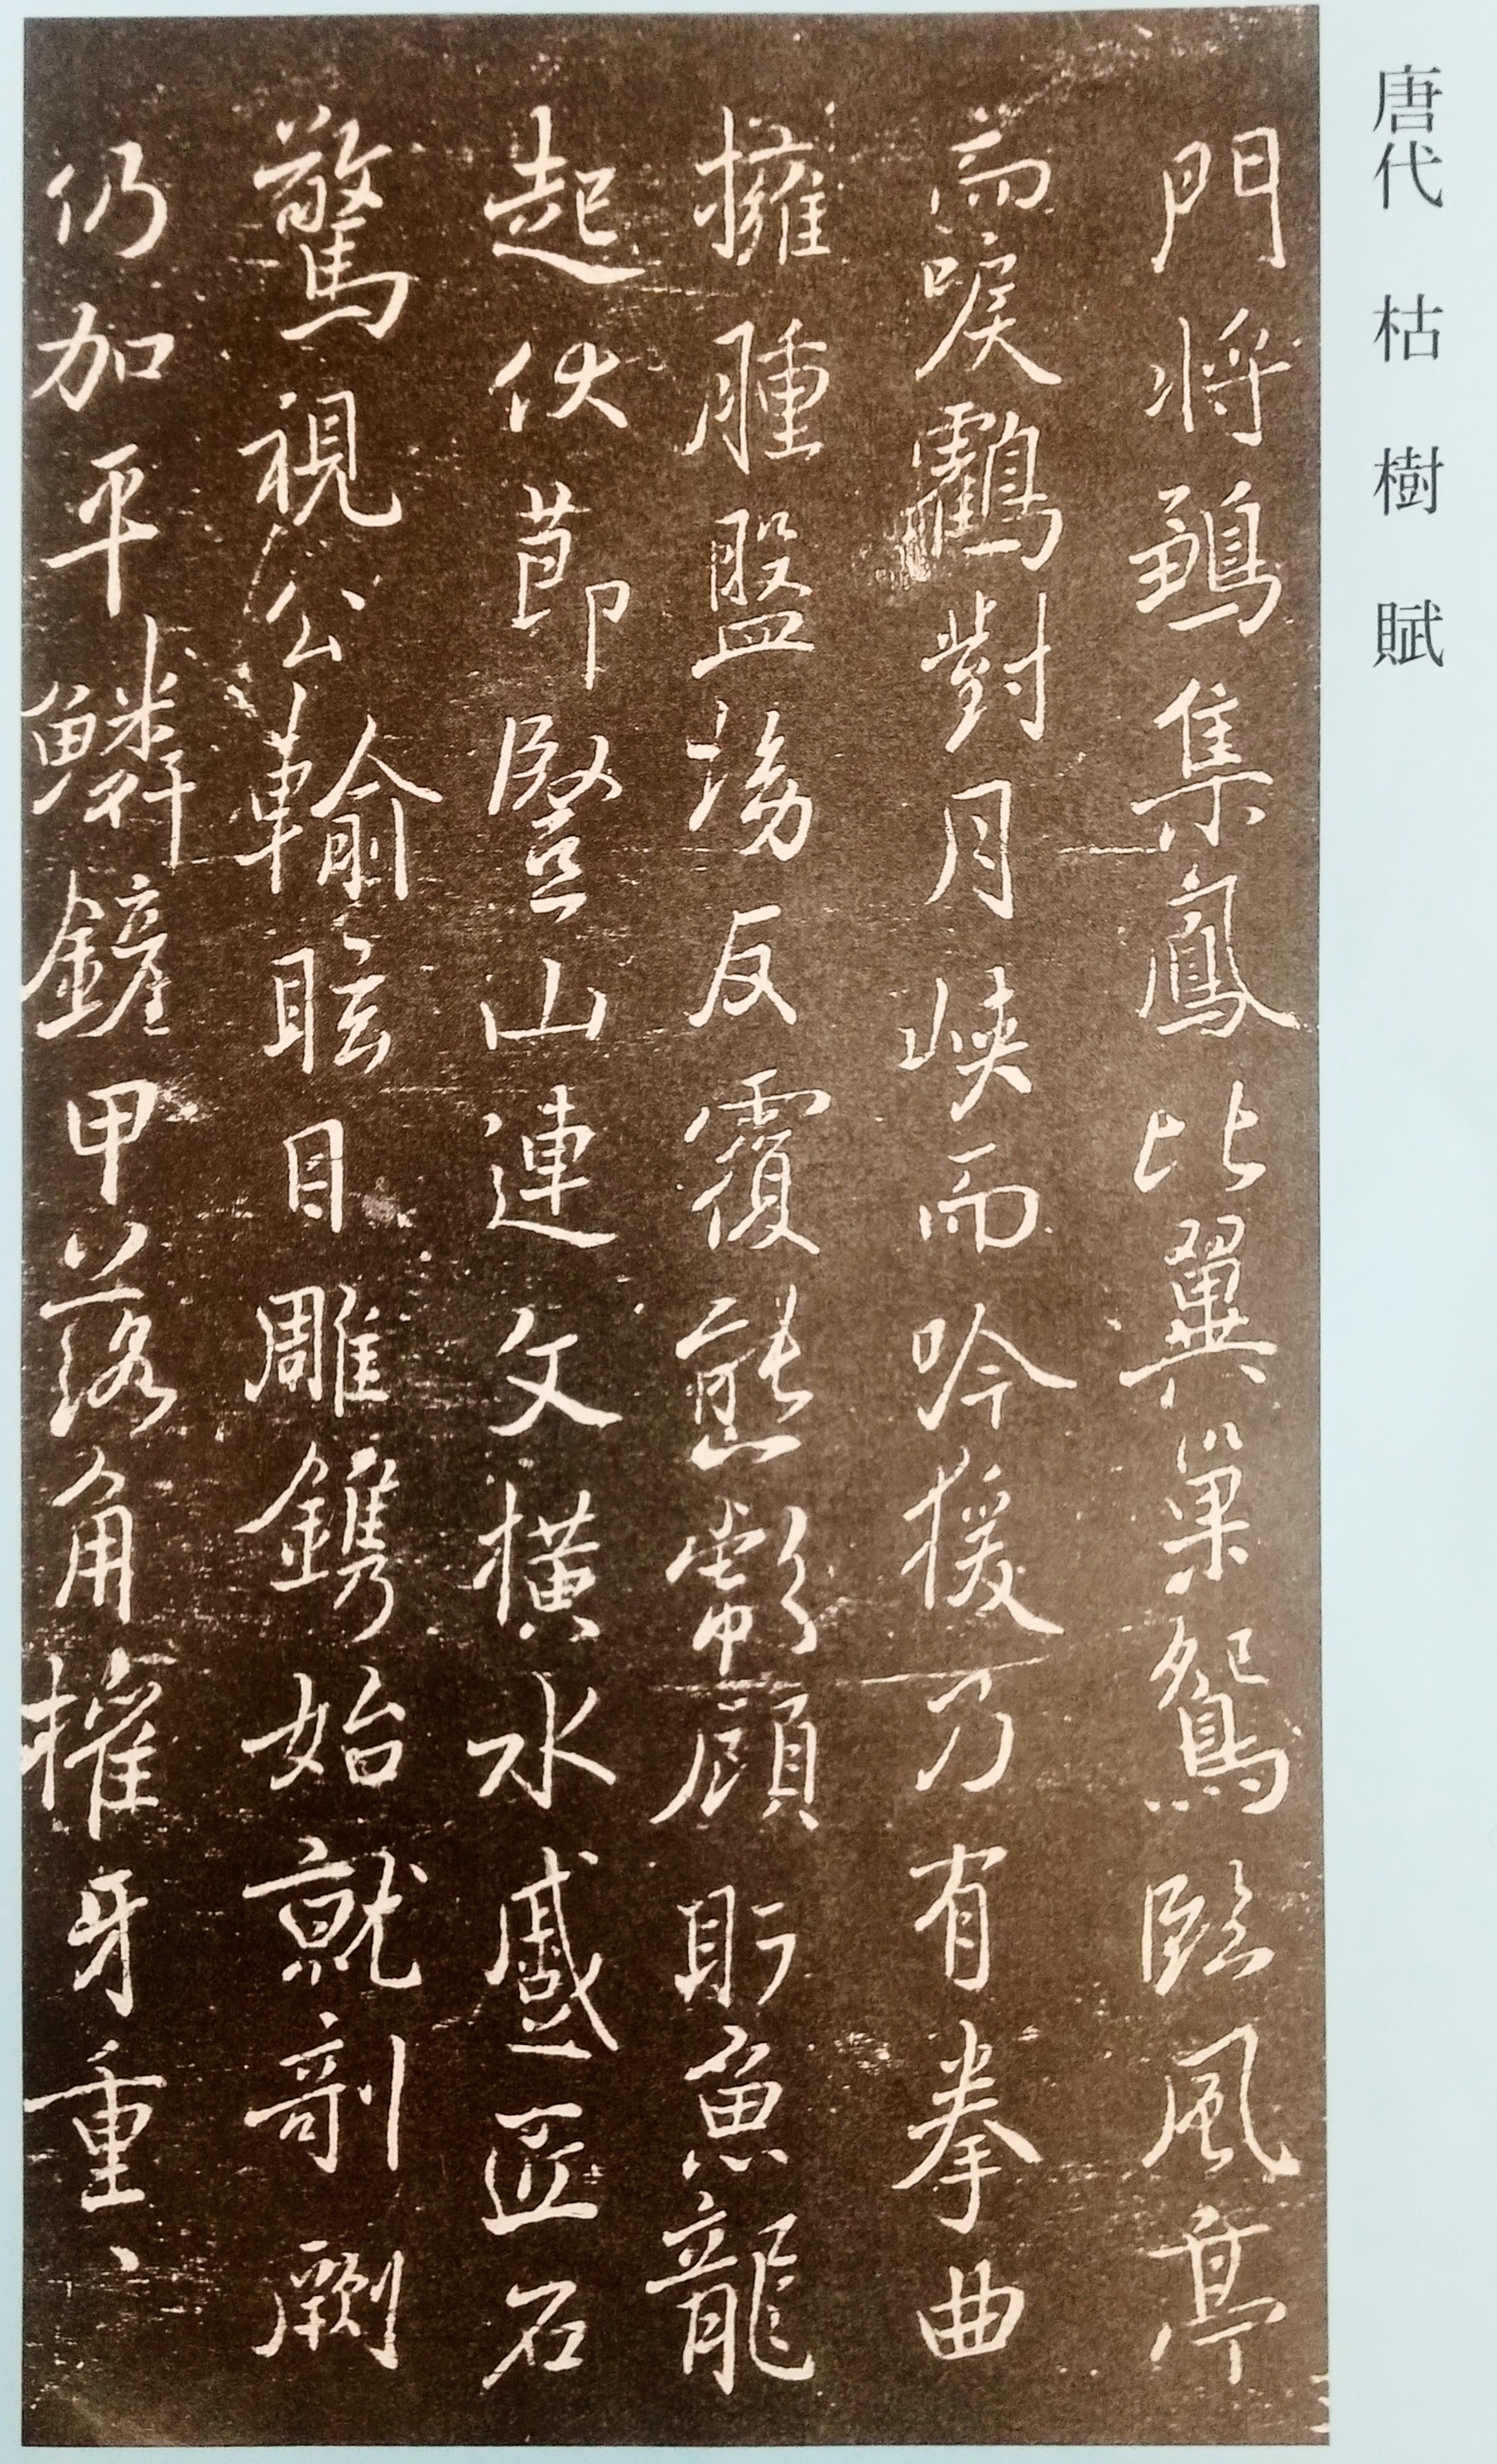 唐代 枯樹賦
門將鶵集鳳比翼巢鴛臨風亭
而唳鸖對月峽而吟猨乃有拳曲
擁腫盤坳反覆熊彪顧盻魚龍
起伏節豎山連文橫水蹙匠石
驚視公輸眩目雕鐫始就剞劂
仍加平鱗鏟甲落角摧牙重、